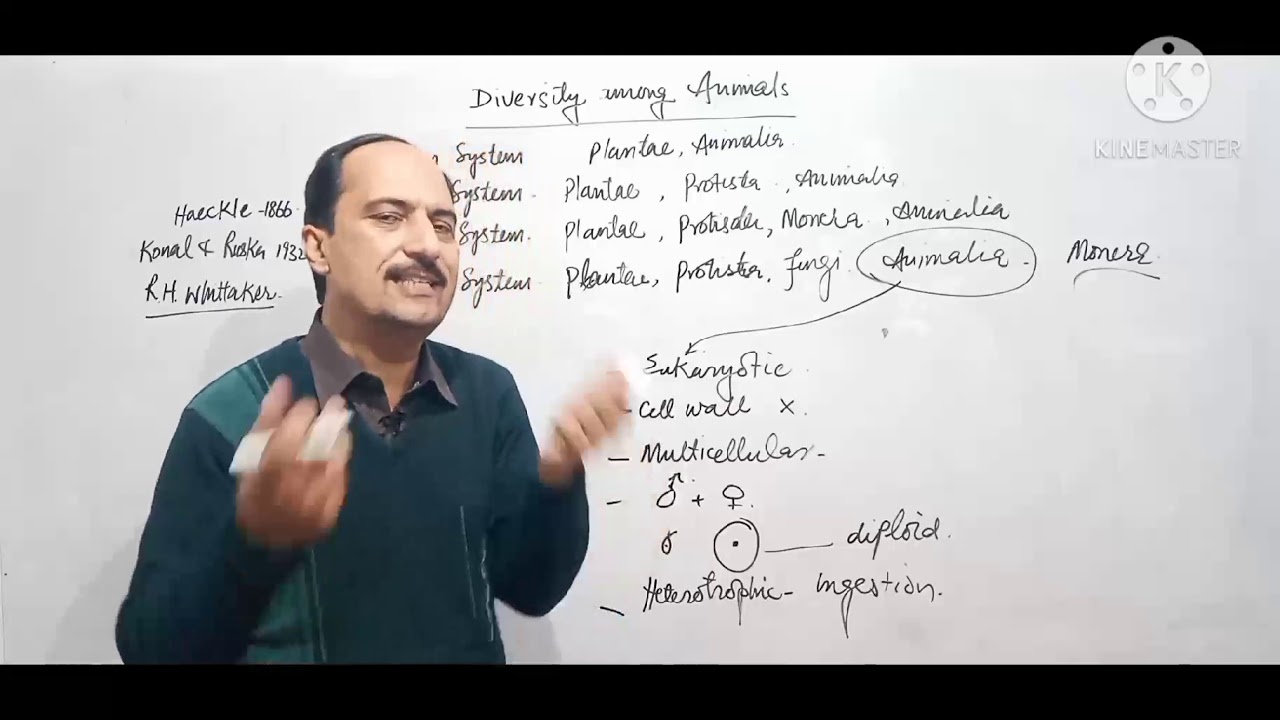 Diversity among Animals
System Plantae, Animalia
System. Plantae, Protista, Animalia
Haeckle -1866.
System. Plantae, Protista, Monera, Animalia
Konal & Ruska 1932
System. Plantae, Protista, fungi. Animalia. Monera
R.H. Whittaker.
Eukaryotic
- Cell wall ×.
- Multicellular-
- ♂ + ♀.
diploid.
- Heterotrophic- ingestion.
K
KINEMASTER